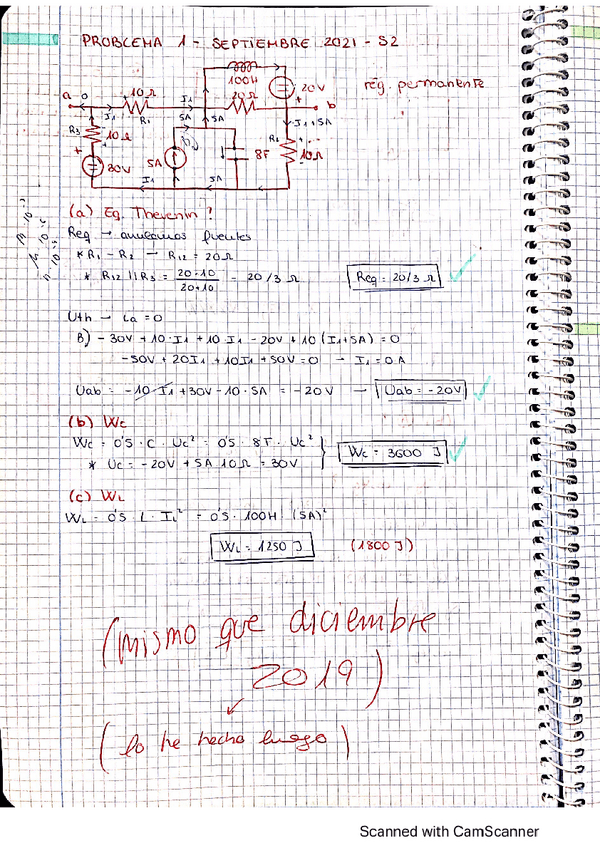 PROBLEMA 1 - SEPTIEMBRE 2021 - S2
100H
20V
rég. permanente
a
10Ω
I1
20Ω
b
R1
5A
5A
I1+5A
R3
10Ω
5A
8F
R2
10Ω
30V
I1
5A
(a) Eq. Thevenin?
Req → anulamos fuentes
* R1 - R2 → R12 = 20Ω
* R12 || R3 = 20·10 / 20+10 = 20/3 Ω
Req = 20/3 Ω
Uth → ia = 0
B) -30V + 10·I1 + 10·I1 - 20V + 10(I1+5A) = 0
-50V + 20I1 + 10I1 + 50V = 0 → I1 = 0A
Uab = -10·I1 + 30V - 10·5A = -20V → Uab = -20V
(b) Wc
Wc = 0'5 · C · Uc² = 0'5 · 8F · Uc²
Wc = 3600 J
* Uc = -20V + 5A·10Ω = 30V
(c) WL
WL = 0'5 · L · IL² = 0'5 · 100H · (5A)²
WL = 1250 J
(1800 J)
(mismo que diciembre
2019)
(lo he hecho luego)
Scanned with CamScanner